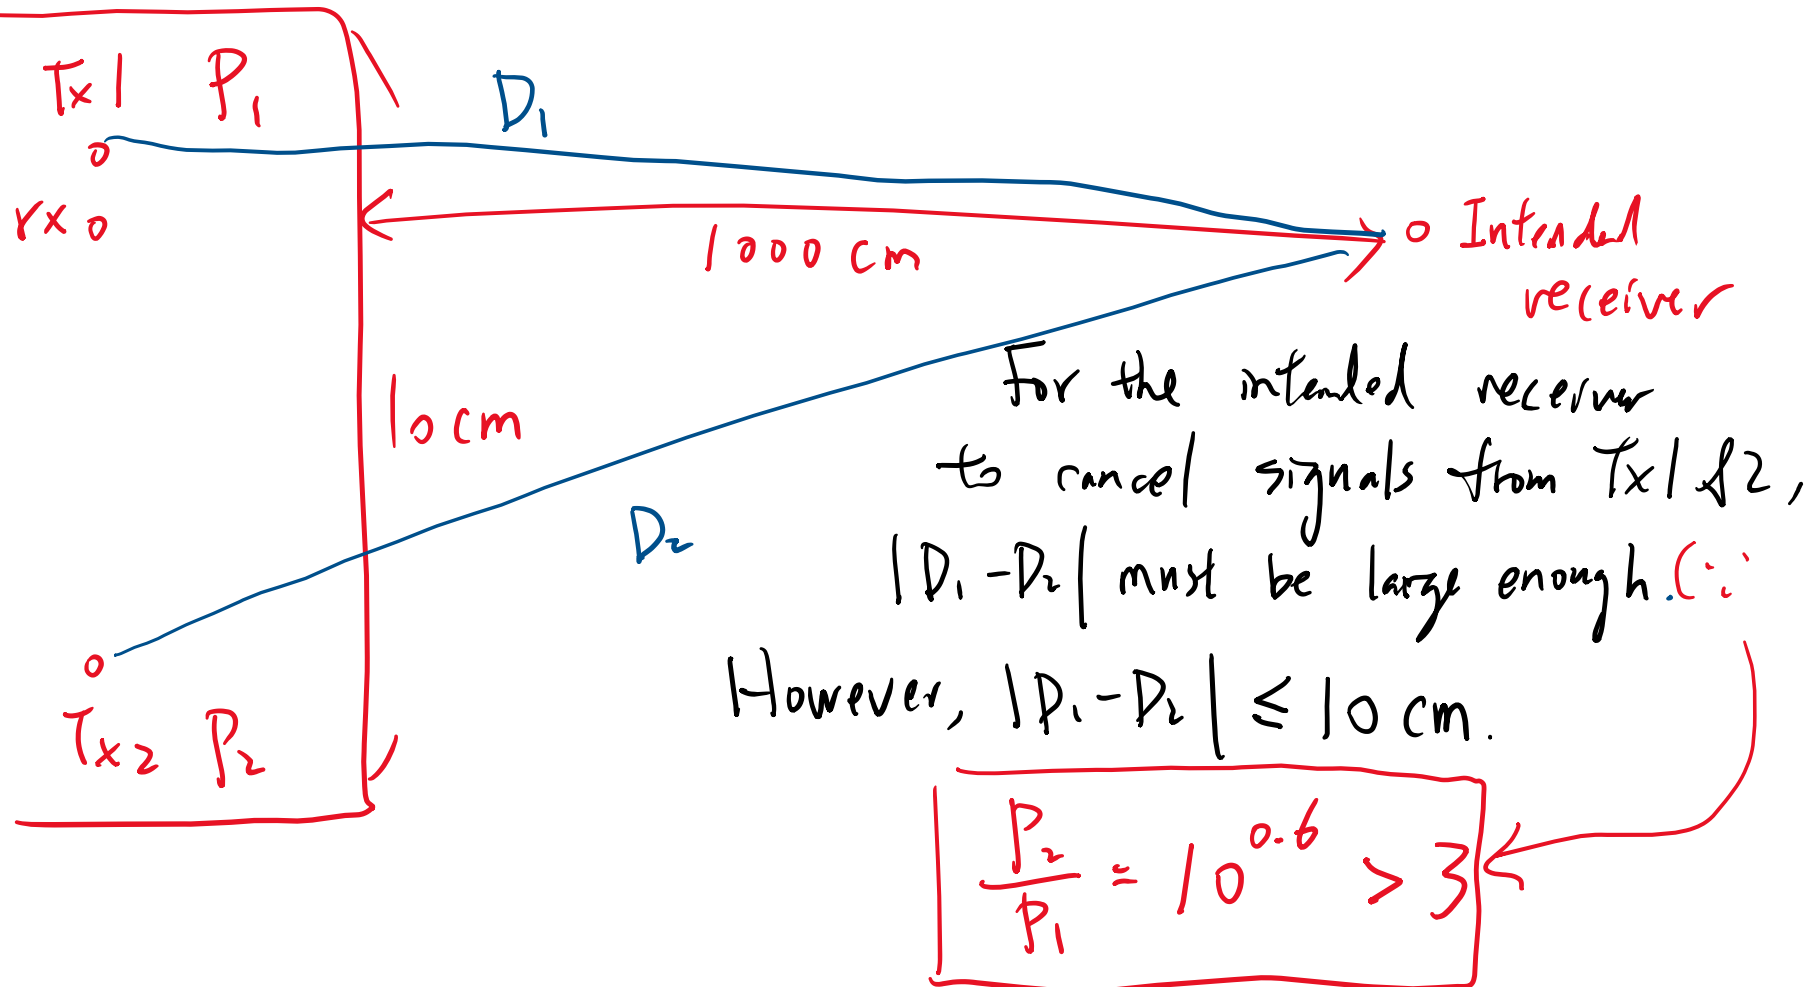 Tx1 P₁
D₁
rx
1000 cm
Intended
receiver
10 cm
D₂
For the intended receiver
to cancel signals from Tx1 & 2,
|D₁ - D₂| must be large enough. (∵
However, |D₁ - D₂| ≤ 10 cm.
Tx2 P₂
P₂/P₁ = 10^0.6 > 3